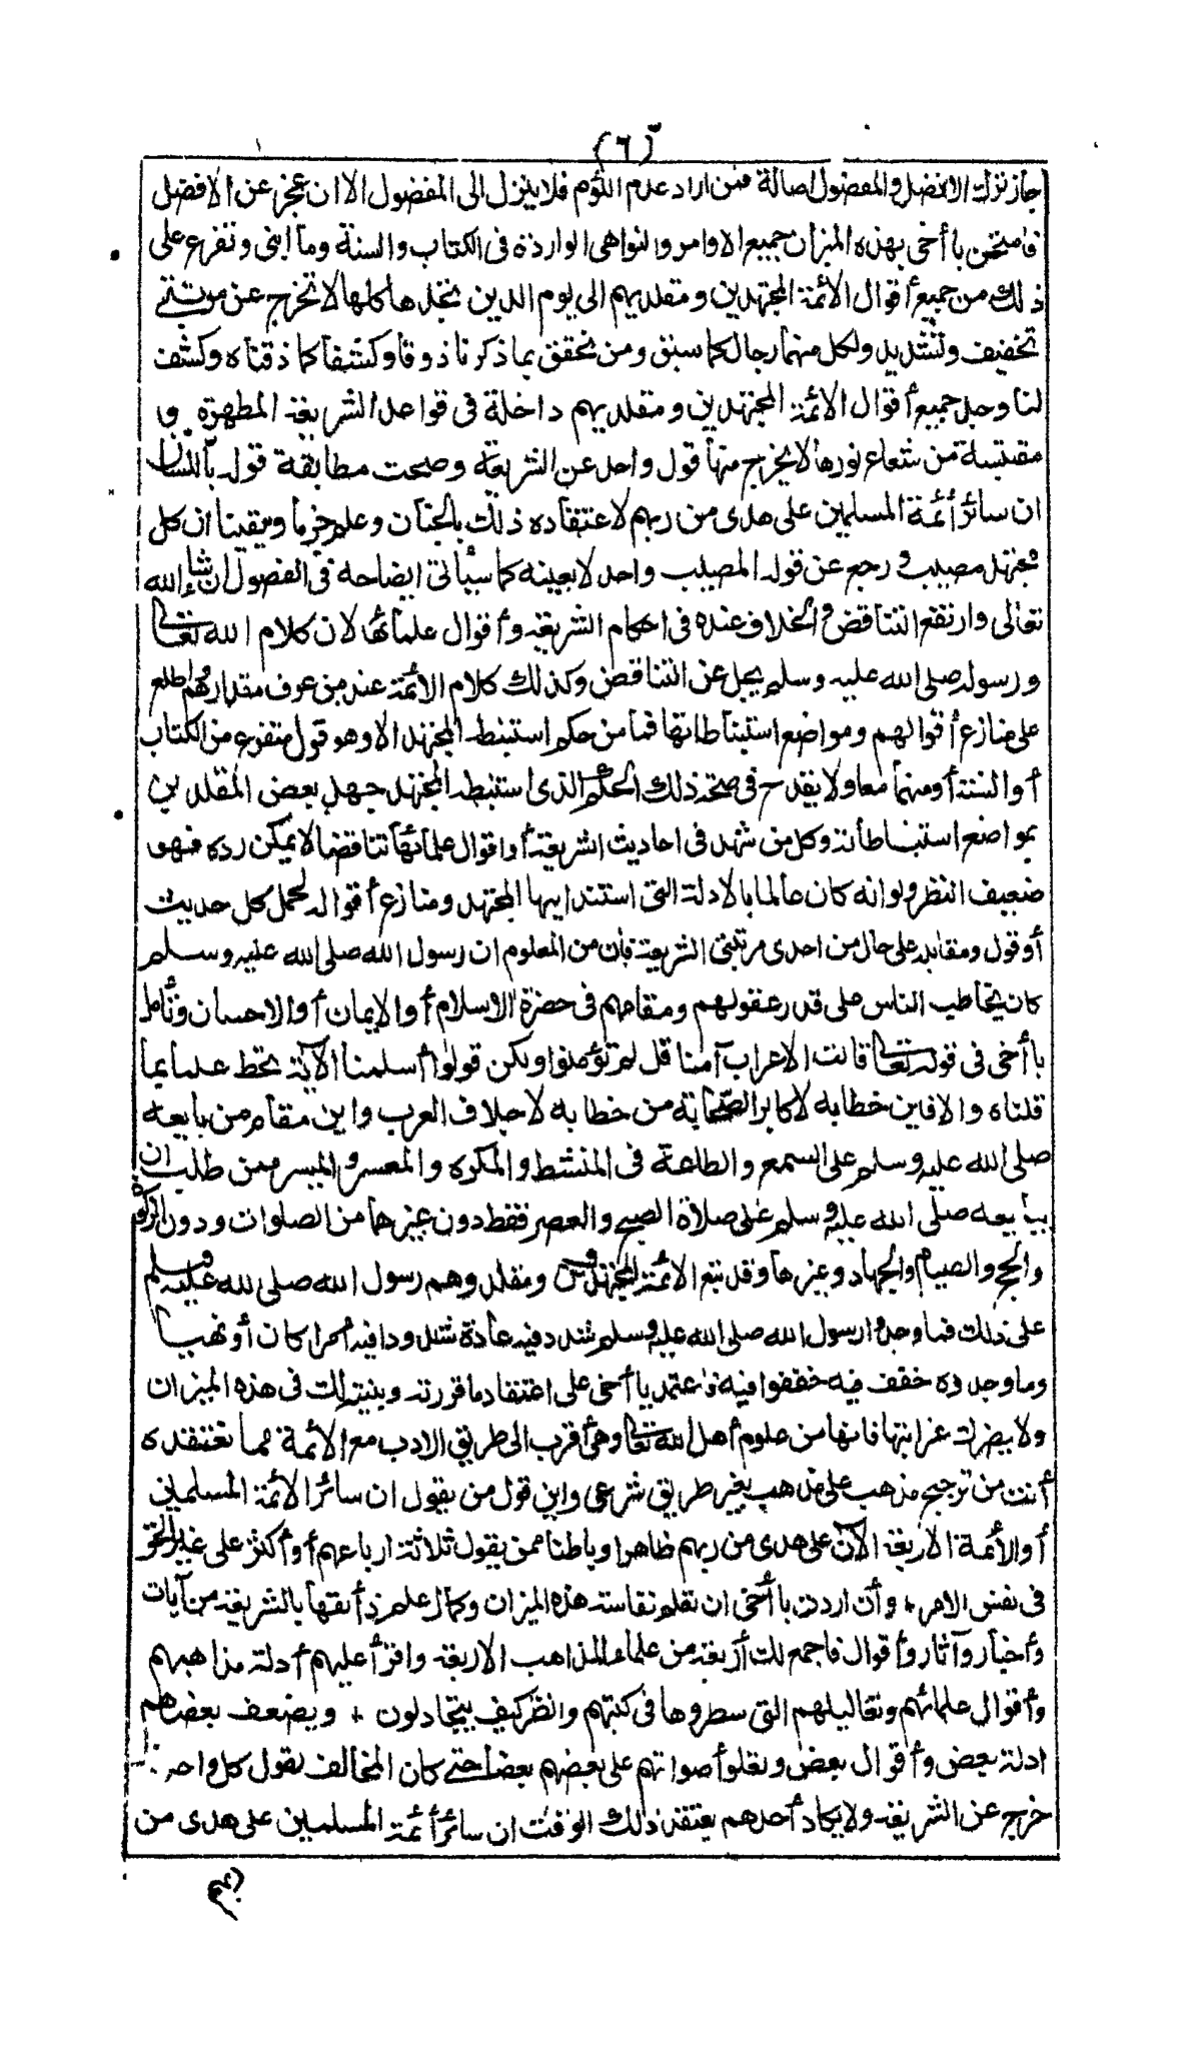 (٦)
جاز ترك الافضل والمفضول اصالة فمن اراد عدم اللوم فلا ينزل الى المفضول الا ان عجز عن الافضل
فامتحن يا أخى بهذه الميزان جميع الاوامر والنواهى الواردة فى الكتاب والسنة وما انبنى وتفرع على
ذلك من جميع أقوال الائمة المجتهدين ومقلديهم الى يوم الدين تجدها كلها لا تخرج عن مرتبتى
تخفيف وتشديد ولكل منهما رجال كما سبق ومن تحقق بما ذكرنا ذوقا وكشفا كما ذقناه وكشف
لنا وجد جميع أقوال الائمة المجتهدين ومقلديهم داخلة فى قواعد الشريعة المطهرة و
مقتبسة من شعاع نورها لا يخرج منها قول واحد عن الشريعة وصحت مطابقة قوله باللسان
ان سائر أئمة المسلمين على هدى من ربهم لاعتقاده ذلك بالجنان وعلم جزما ويقينا ان كل
مجتهد مصيب ورجع عن قوله المصيب واحد لا بعينه كما سيأتى ايضاحه فى الفصول ان شاء الله
تعالى وارتفع التناقض والخلاف عنده فى احكام الشريعة وأقوال علمائها لان كلام الله تعالى
ورسوله صلى الله عليه وسلم يجل عن التناقض وكذلك كلام الائمة عند من عرف مقدارهم واطلع
على منازع أقوالهم ومواضع استنباطاتها فما من حكم استنبطه المجتهد الا وهو قول متفرع من الكتاب
أو السنة أو منهما معا ولا يقدح فى صحة ذلك الحكم الذى استنبطه المجتهد جهل بعض المقلدين
بمواضع استنباطاته وكل من شهد فى احاديث الشريعة أو اقوال علمائها تناقضا لا يمكن رده فهو
ضعيف النظر ولو انه كان عالما بالادلة التى استند اليها المجتهد ومنازع أقواله لحمل كل حديث
أو قول ومقابله على حال من احدى مرتبتى الشريعة فان من المعلوم ان رسول الله صلى الله عليه وسلم
كان يخاطب الناس على قدر عقولهم ومقامهم فى حضرة الاسلام أو الايمان أو الاحسان وتأمل
يا أخى فى قوله تعالى قالت الاعراب آمنا قل لم تؤمنوا ولكن قولوا أسلمنا الآية تحط علما بما
قلناه والا فاين خطابه لاكابر الصحابة من خطابه لاجلاف العرب واين مقام من بايعه
صلى الله عليه وسلم على السمع والطاعة فى المنشط والمكره والمعسر والميسر ممن طلب ان
يبايعه صلى الله عليه وسلم على صلاة الصبح والعصر فقط دون غيرهما من الصلوات ودون الزكوة
والحج والصيام والجهاد وغيرها وقد تبع الائمة المجتهدون ومقلدوهم رسول الله صلى الله عليه وسلم
على ذلك فما وجدوا رسول الله صلى الله عليه وسلم شدد فيه عادة شددوا فيه امرا كان أو نهيا
وما وجدوه خفف فيه خففوا فيه فاعتمد يا أخى على اعتقاد ما قررته وبينته لك فى هذه الميزان
ولا يضرك غرابتها فانها من علوم أهل الله تعالى وهى أقرب الى طريق الادب مع الائمة مما تعتقده
أنت من ترجيح مذهب على مذهب بغير طريق شرعى واين قول من يقول ان سائر الائمة المسلمين
أو الائمة الاربعة الآن على هدى من ربهم ظاهرا وباطنا ممن يقول ثلاثة ارباعهم أو أكثر على غير الحق
فى نفس الامر + وان اردت يا أخى ان تعلم نفاسة هذه الميزان وكمال علم ذائقها بالشريعة من آيات
وأخبار وآثار وأقوال فاجمع لك أربعة من علماء المذاهب الاربعة واقرأ عليهم أدلة مذاهبهم
وأقوال علمائهم وتعاليلهم التى سطروها فى كتبهم وانظر كيف يتجادلون + ويضعف بعضهم
ادلة بعض وأقوال بعض وتعلو أصواتهم على بعضهم بعضا حتى كان المخالف بقول كل واحد
خرج عن الشريعة ولا يكاد أحدهم يعتقد ذلك الوقت ان سائر أئمة المسلمين على هدى من